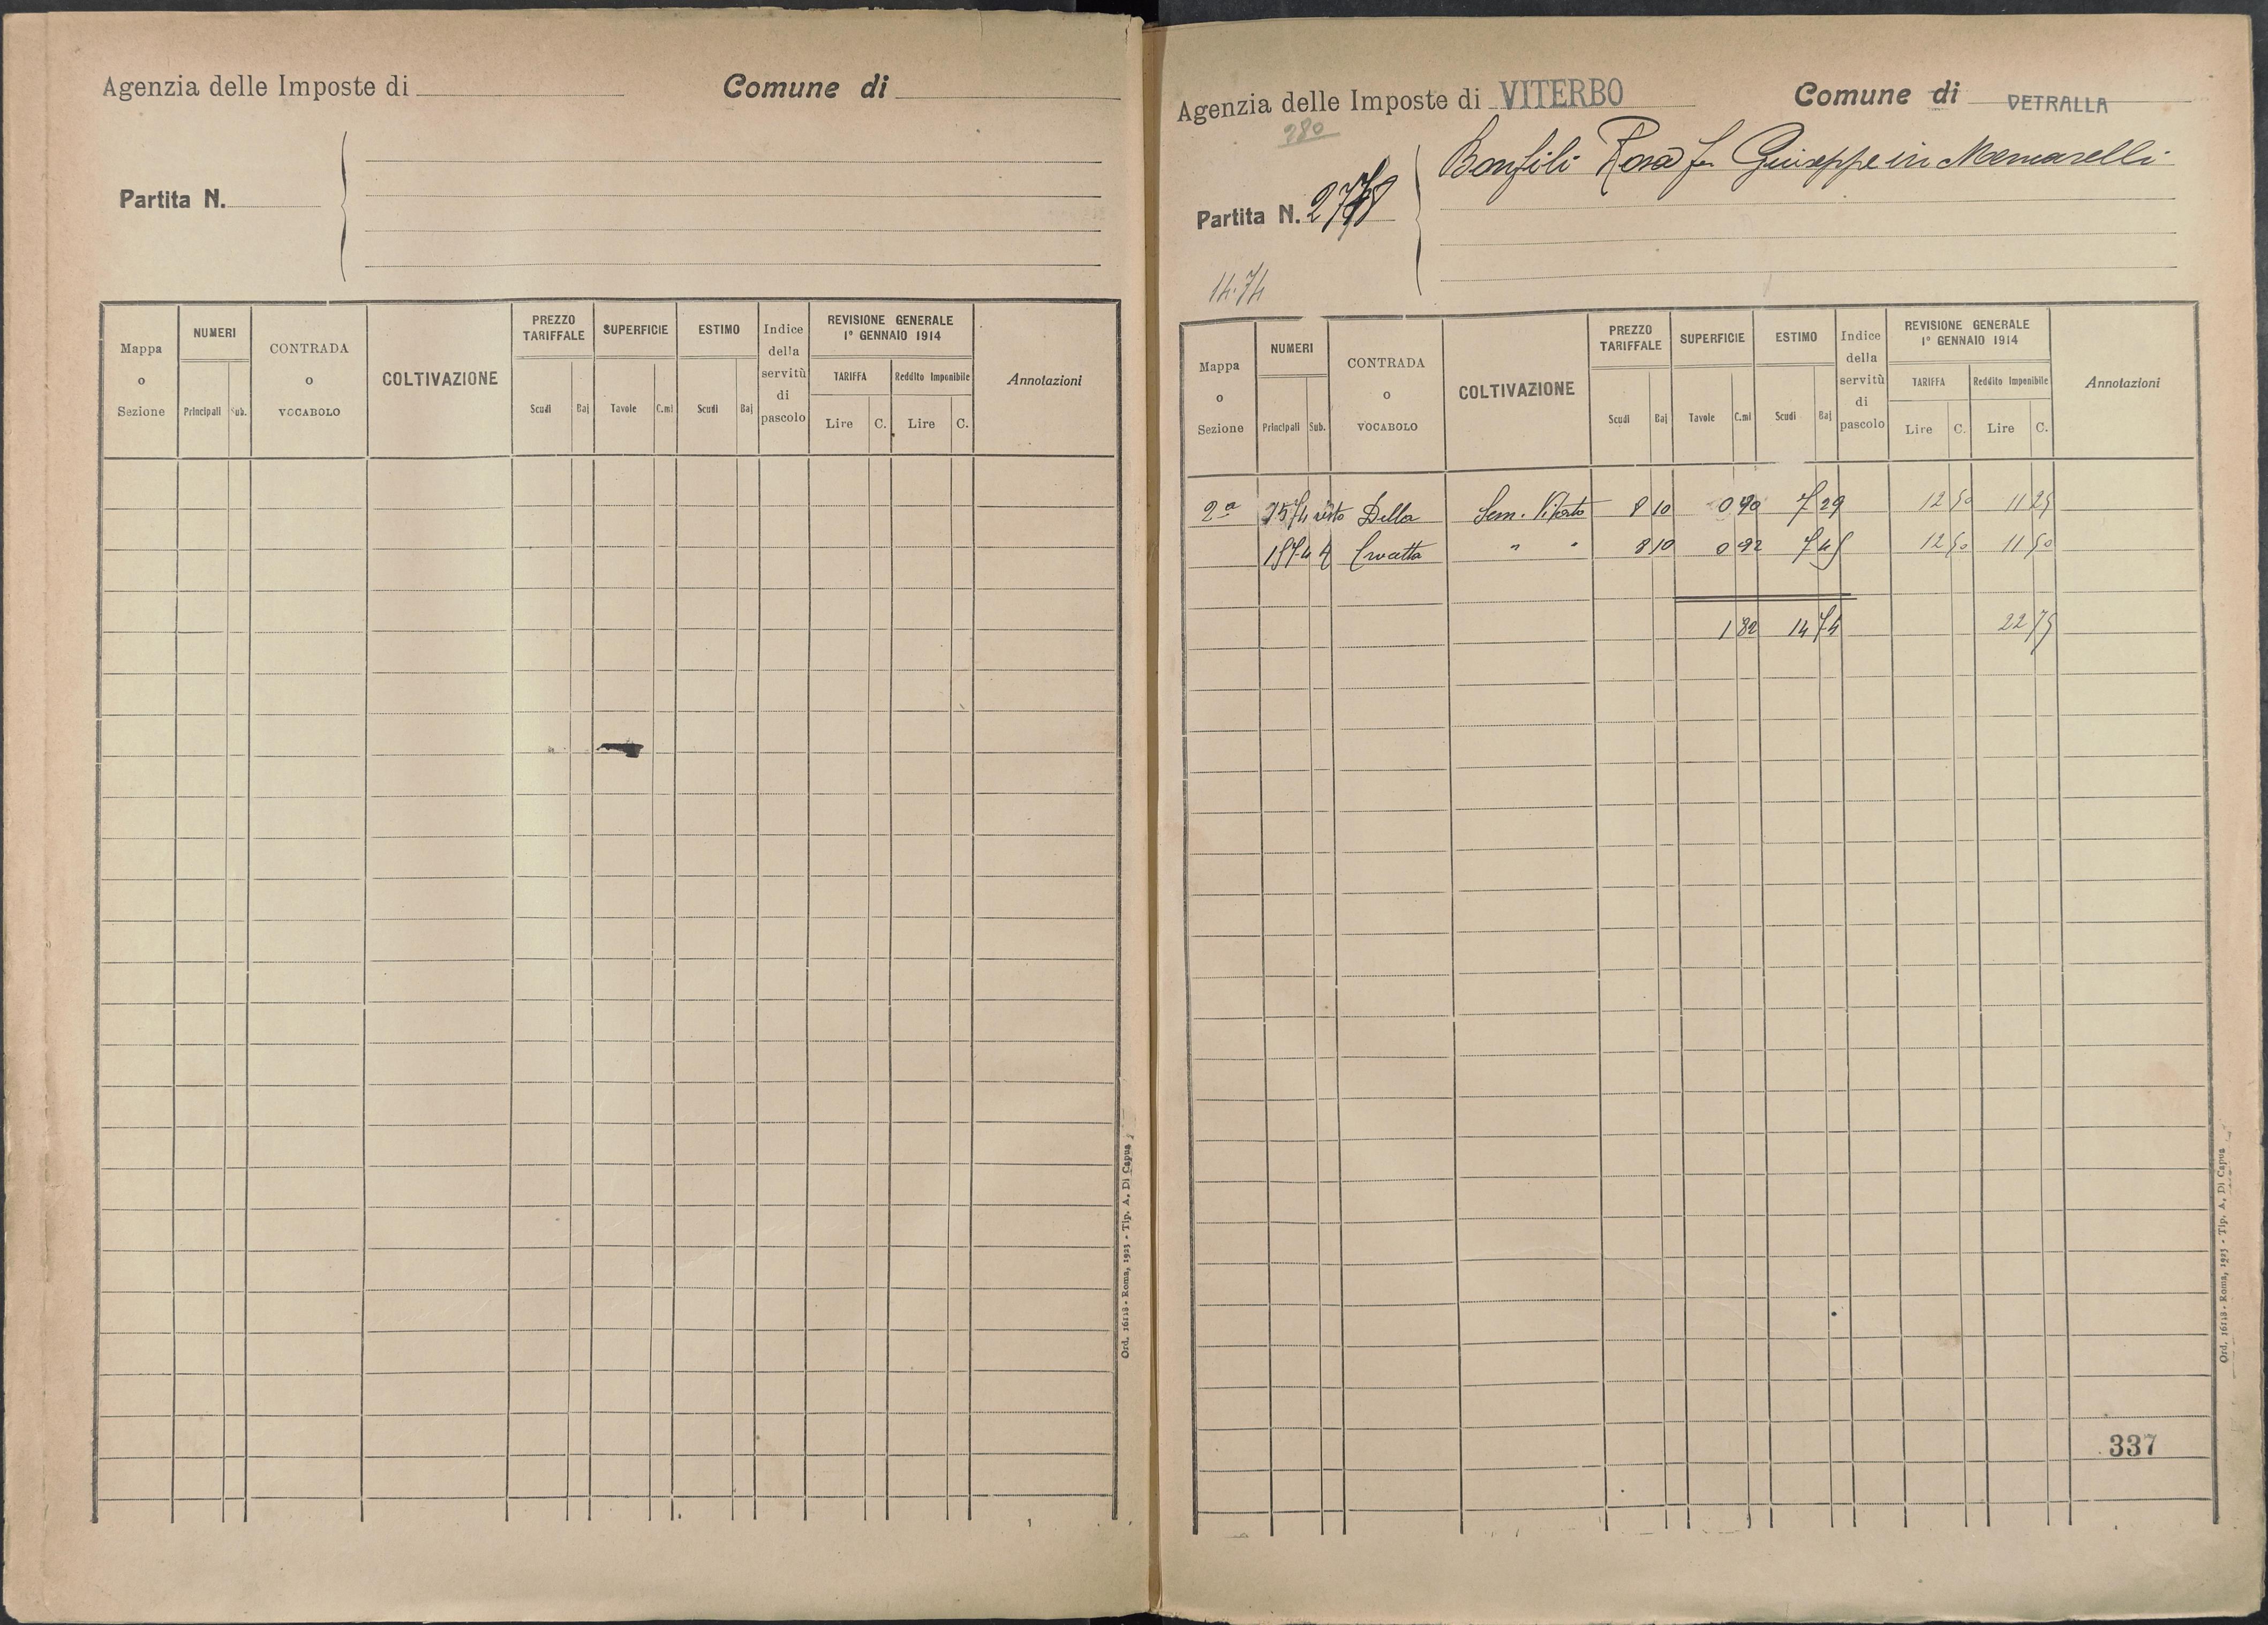 Agenzia delle Imposte di
Comune di
Partita N.
Mappa o Sezione
NUMERI
Principali
Sub.
CONTRADA o VOCABOLO
COLTIVAZIONE
PREZZO TARIFFALE
Scudi
Baj
SUPERFICIE
Tavole
C.mi
ESTIMO
Scudi
Baj
Indice della servitù di pascolo
REVISIONE GENERALE
1° GENNAIO 1914
TARIFFA
Lire
C.
Reddito Imponibile
Lire
C.
Annotazioni
Ord. 16118 - Roma, 1923 - Tip. A. Di Capua
Agenzia delle Imposte di VITERBO
Comune di VETRALLA
280
Bonfili Rosa fu Giuseppe in
Partita N.
14.74
Mappa o Sezione
NUMERI
Principali
Sub.
CONTRADA o VOCABOLO
COLTIVAZIONE
PREZZO TARIFFALE
Scudi
Baj
SUPERFICIE
Tavole
C.mi
ESTIMO
Scudi
Baj
Indice della servitù di pascolo
REVISIONE GENERALE
1° GENNAIO 1914
TARIFFA
Lire
C.
Reddito Imponibile
Lire
C.
Annotazioni
2a Della Sem. Vitato 8 10 0 90 7 29 12 50 11 25
Crocetta " " 8 10 0 92 7 45 12 50 11 50
1 82 14 74 22 75
337
Ord. 16118 - Roma, 1923 - Tip. A. Di Capua